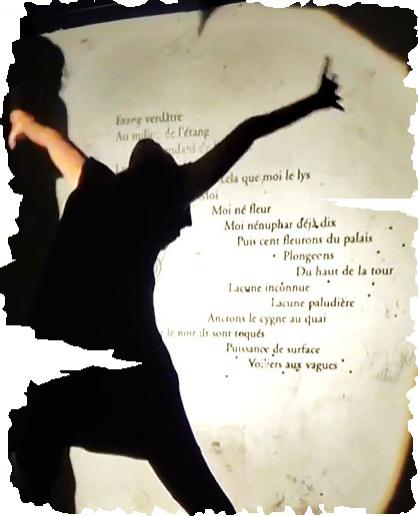 Etang verdâtre
Au milieu de l'étang
cela que moi le lys
Moi
Moi né fleur
Moi nénuphar déjà dix
Puis cent fleurons du palais
Plongeons
Du haut de la tour
Lacune inconnue
Lacune paludière
Ancrons le cygne au quai
le noir ils sont toqués
Puissance de surface
Voiliers aux vagues